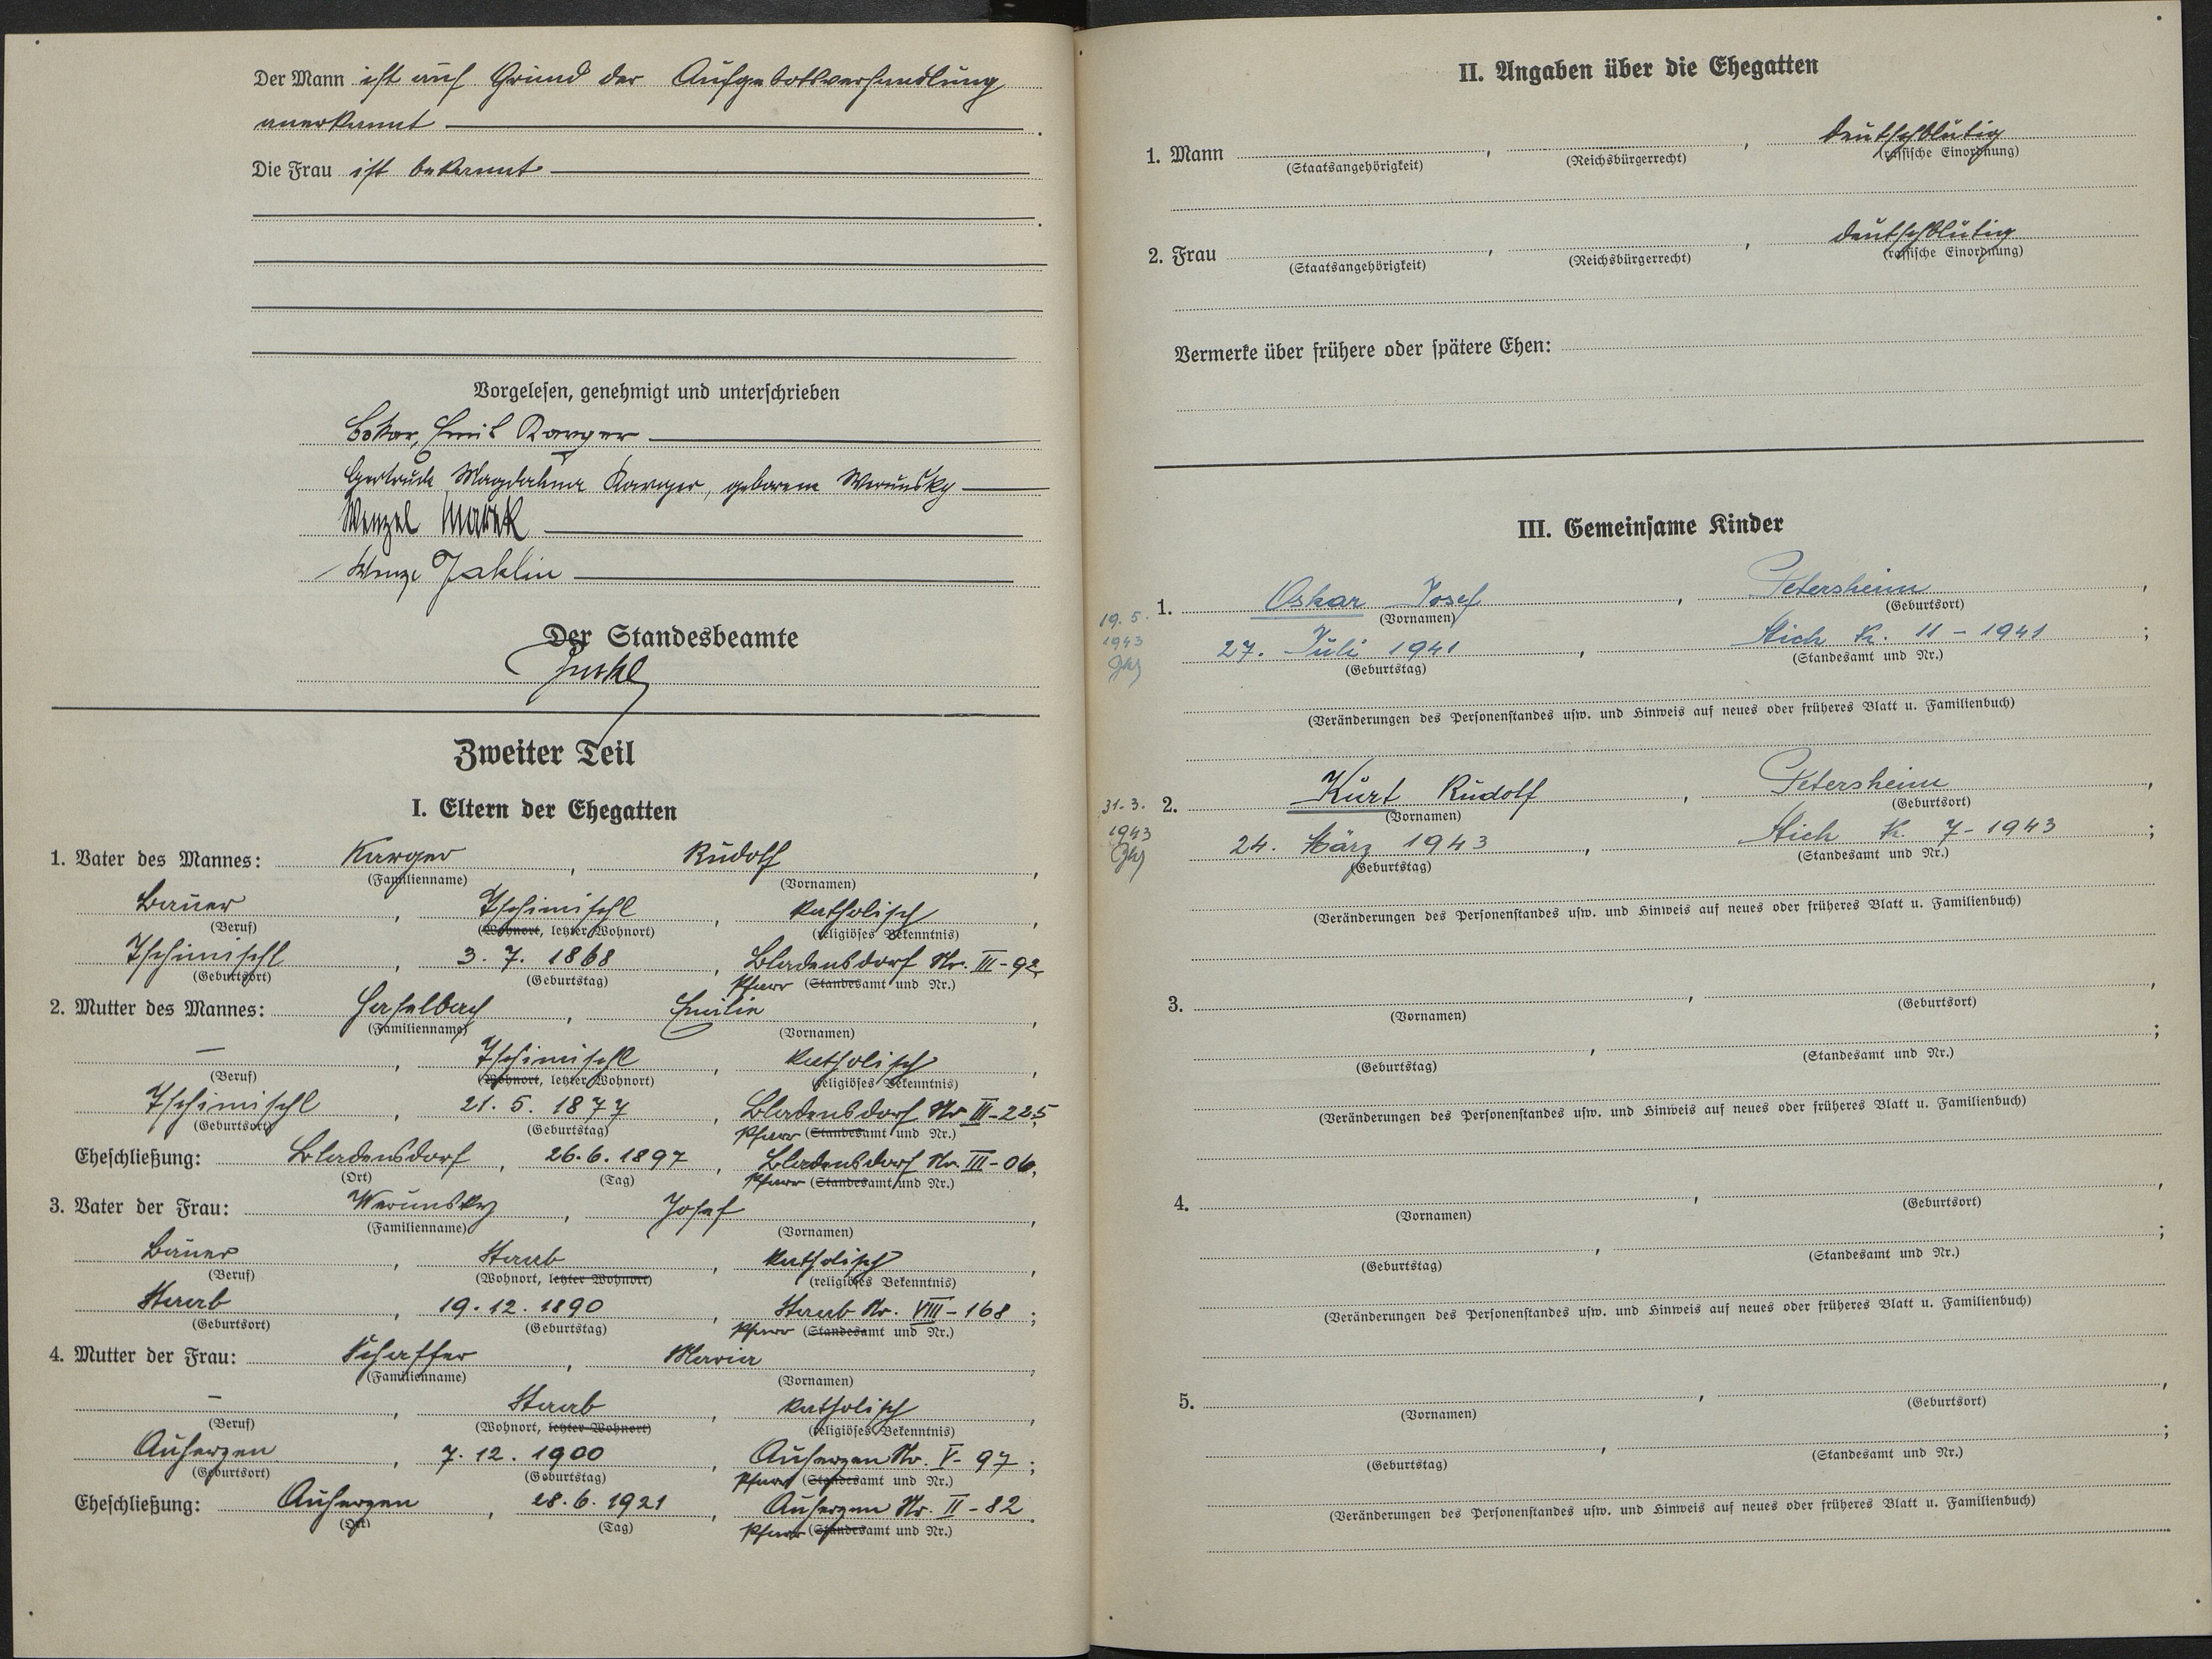 Der Mann ist auf Grund der Aufgebotsverhandlung
anerkannt.
Die Frau ist bekannt
.
Vorgelesen, genehmigt und unterschrieben
Oskar, Emil Karger
Gertrude Magdalena Karger, geborene Werunsky
Wenzel Marek
Wenzl Jaklin
Der Standesbeamte
Zweiter Teil
I. Eltern der Ehegatten
1. Vater des Mannes: Karger, Rudolf,
(Familienname) (Vornamen)
Bauer, Tschimischl, katholisch,
(Beruf) (Wohnort, letzter Wohnort) (religiöses Bekenntnis)
Tschimischl, 3. 7. 1868, Bladensdorf Nr. III-92
(Geburtsort) (Geburtstag) Pfarr (Standesamt und Nr.)
2. Mutter des Mannes: Haselbach, Emilie,
(Familienname) (Vornamen)
–, Tschimischl, katholisch,
(Beruf) (Wohnort, letzter Wohnort) (religiöses Bekenntnis)
Tschimischl, 21. 5. 1877, Bladensdorf Nr III-225;
(Geburtsort) (Geburtstag) Pfarr (Standesamt und Nr.)
Eheschließung: Bladensdorf, 26. 6. 1897, Bladensdorf Nr. III-06.
(Ort) (Tag) Pfarr (Standesamt und Nr.)
3. Vater der Frau: Werunsky, Josef,
(Familienname) (Vornamen)
Bauer, Staab, katholisch,
(Beruf) (Wohnort, letzter Wohnort) (religiöses Bekenntnis)
Staab, 19. 12. 1890, Staab Nr. VIII-168;
(Geburtsort) (Geburtstag) Pfarr (Standesamt und Nr.)
4. Mutter der Frau: Schaffer, Maria,
(Familienname) (Vornamen)
–, Staab, katholisch,
(Beruf) (Wohnort, letzter Wohnort) (religiöses Bekenntnis)
Auherzen, 7. 12. 1900, Auherzen Nr. V-97;
(Geburtsort) (Geburtstag) Pfarr (Standesamt und Nr.)
Eheschließung: Auherzen, 28. 6. 1921, Auherzen Nr. II-82.
(Ort) (Tag) Pfarr (Standesamt und Nr.)
II. Angaben über die Ehegatten
1. Mann , , deutschblütig
(Staatsangehörigkeit) (Reichsbürgerrecht) (rassische Einordnung)
2. Frau , , deutschblütig
(Staatsangehörigkeit) (Reichsbürgerrecht) (rassische Einordnung)
Vermerke über frühere oder spätere Ehen:
III. Gemeinsame Kinder
1. Oskar Josef, Petersheim,
19. 5. (Vornamen) (Geburtsort)
1943 27. Juli 1941, Stich Kr. 11 - 1941;
(Geburtstag) (Standesamt und Nr.)
(Veränderungen des Personenstandes usw. und Hinweis auf neues oder früheres Blatt u. Familienbuch)
31. 3. 2. Kurt Rudolf, Petersheim,
(Vornamen) (Geburtsort)
1943 24. März 1943, Stich Kr. 7 - 1943;
(Geburtstag) (Standesamt und Nr.)
(Veränderungen des Personenstandes usw. und Hinweis auf neues oder früheres Blatt u. Familienbuch)
3. , ,
(Vornamen) (Geburtsort)
, ;
(Geburtstag) (Standesamt und Nr.)
(Veränderungen des Personenstandes usw. und Hinweis auf neues oder früheres Blatt u. Familienbuch)
4. , ,
(Vornamen) (Geburtsort)
, ;
(Geburtstag) (Standesamt und Nr.)
(Veränderungen des Personenstandes usw. und Hinweis auf neues oder früheres Blatt u. Familienbuch)
5. , ,
(Vornamen) (Geburtsort)
, ;
(Geburtstag) (Standesamt und Nr.)
(Veränderungen des Personenstandes usw. und Hinweis auf neues oder früheres Blatt u. Familienbuch)